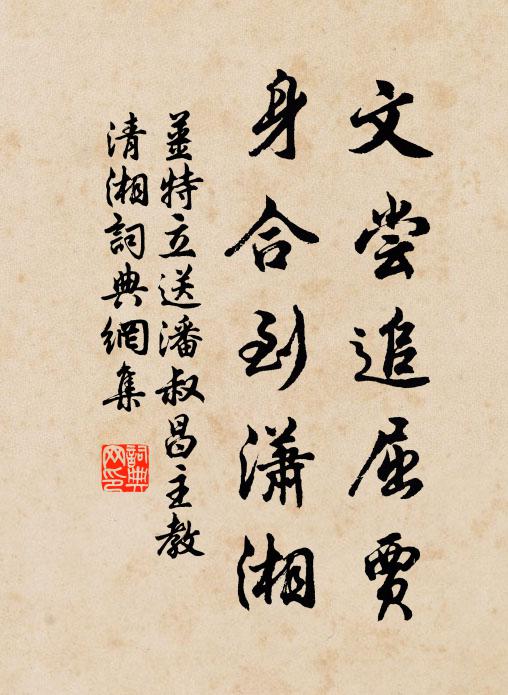 文尝追屈贾
身合到潇湘
姜特立送潘叔昌主教
清湘詞典網集
詞典网印